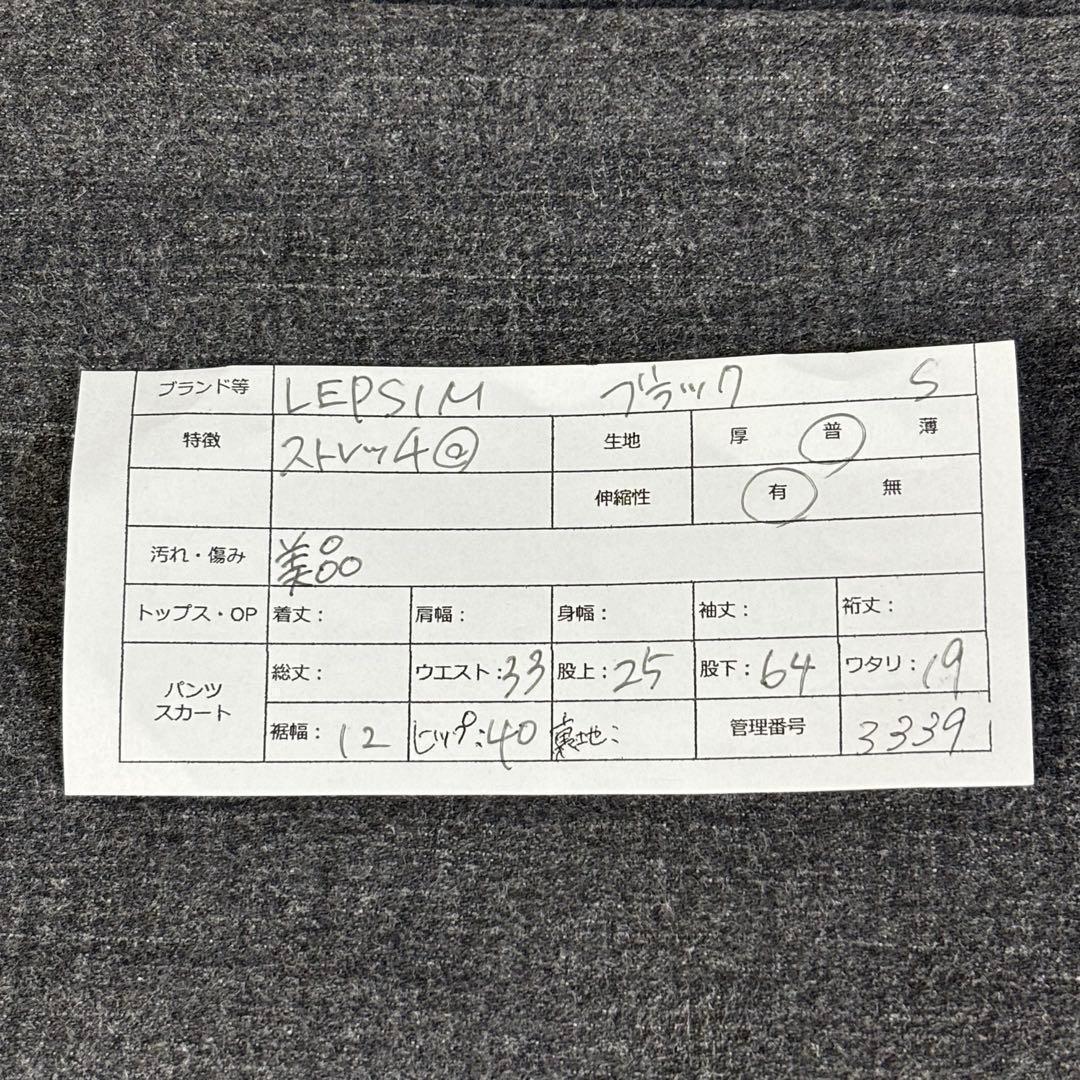 ブランド等 LEPSIM ブラック S
特徴 ストレッチ@ 生地 厚 普 薄
伸縮性 有 無
汚れ・傷み 美品
トップス・OP 着丈： 肩幅： 身幅： 袖丈： 裄丈：
パンツ スカート 総丈： ウエスト：33 股上：25 股下：64 ワタリ：19
裾幅：12 ヒップ：40 裏地： 管理番号 3339